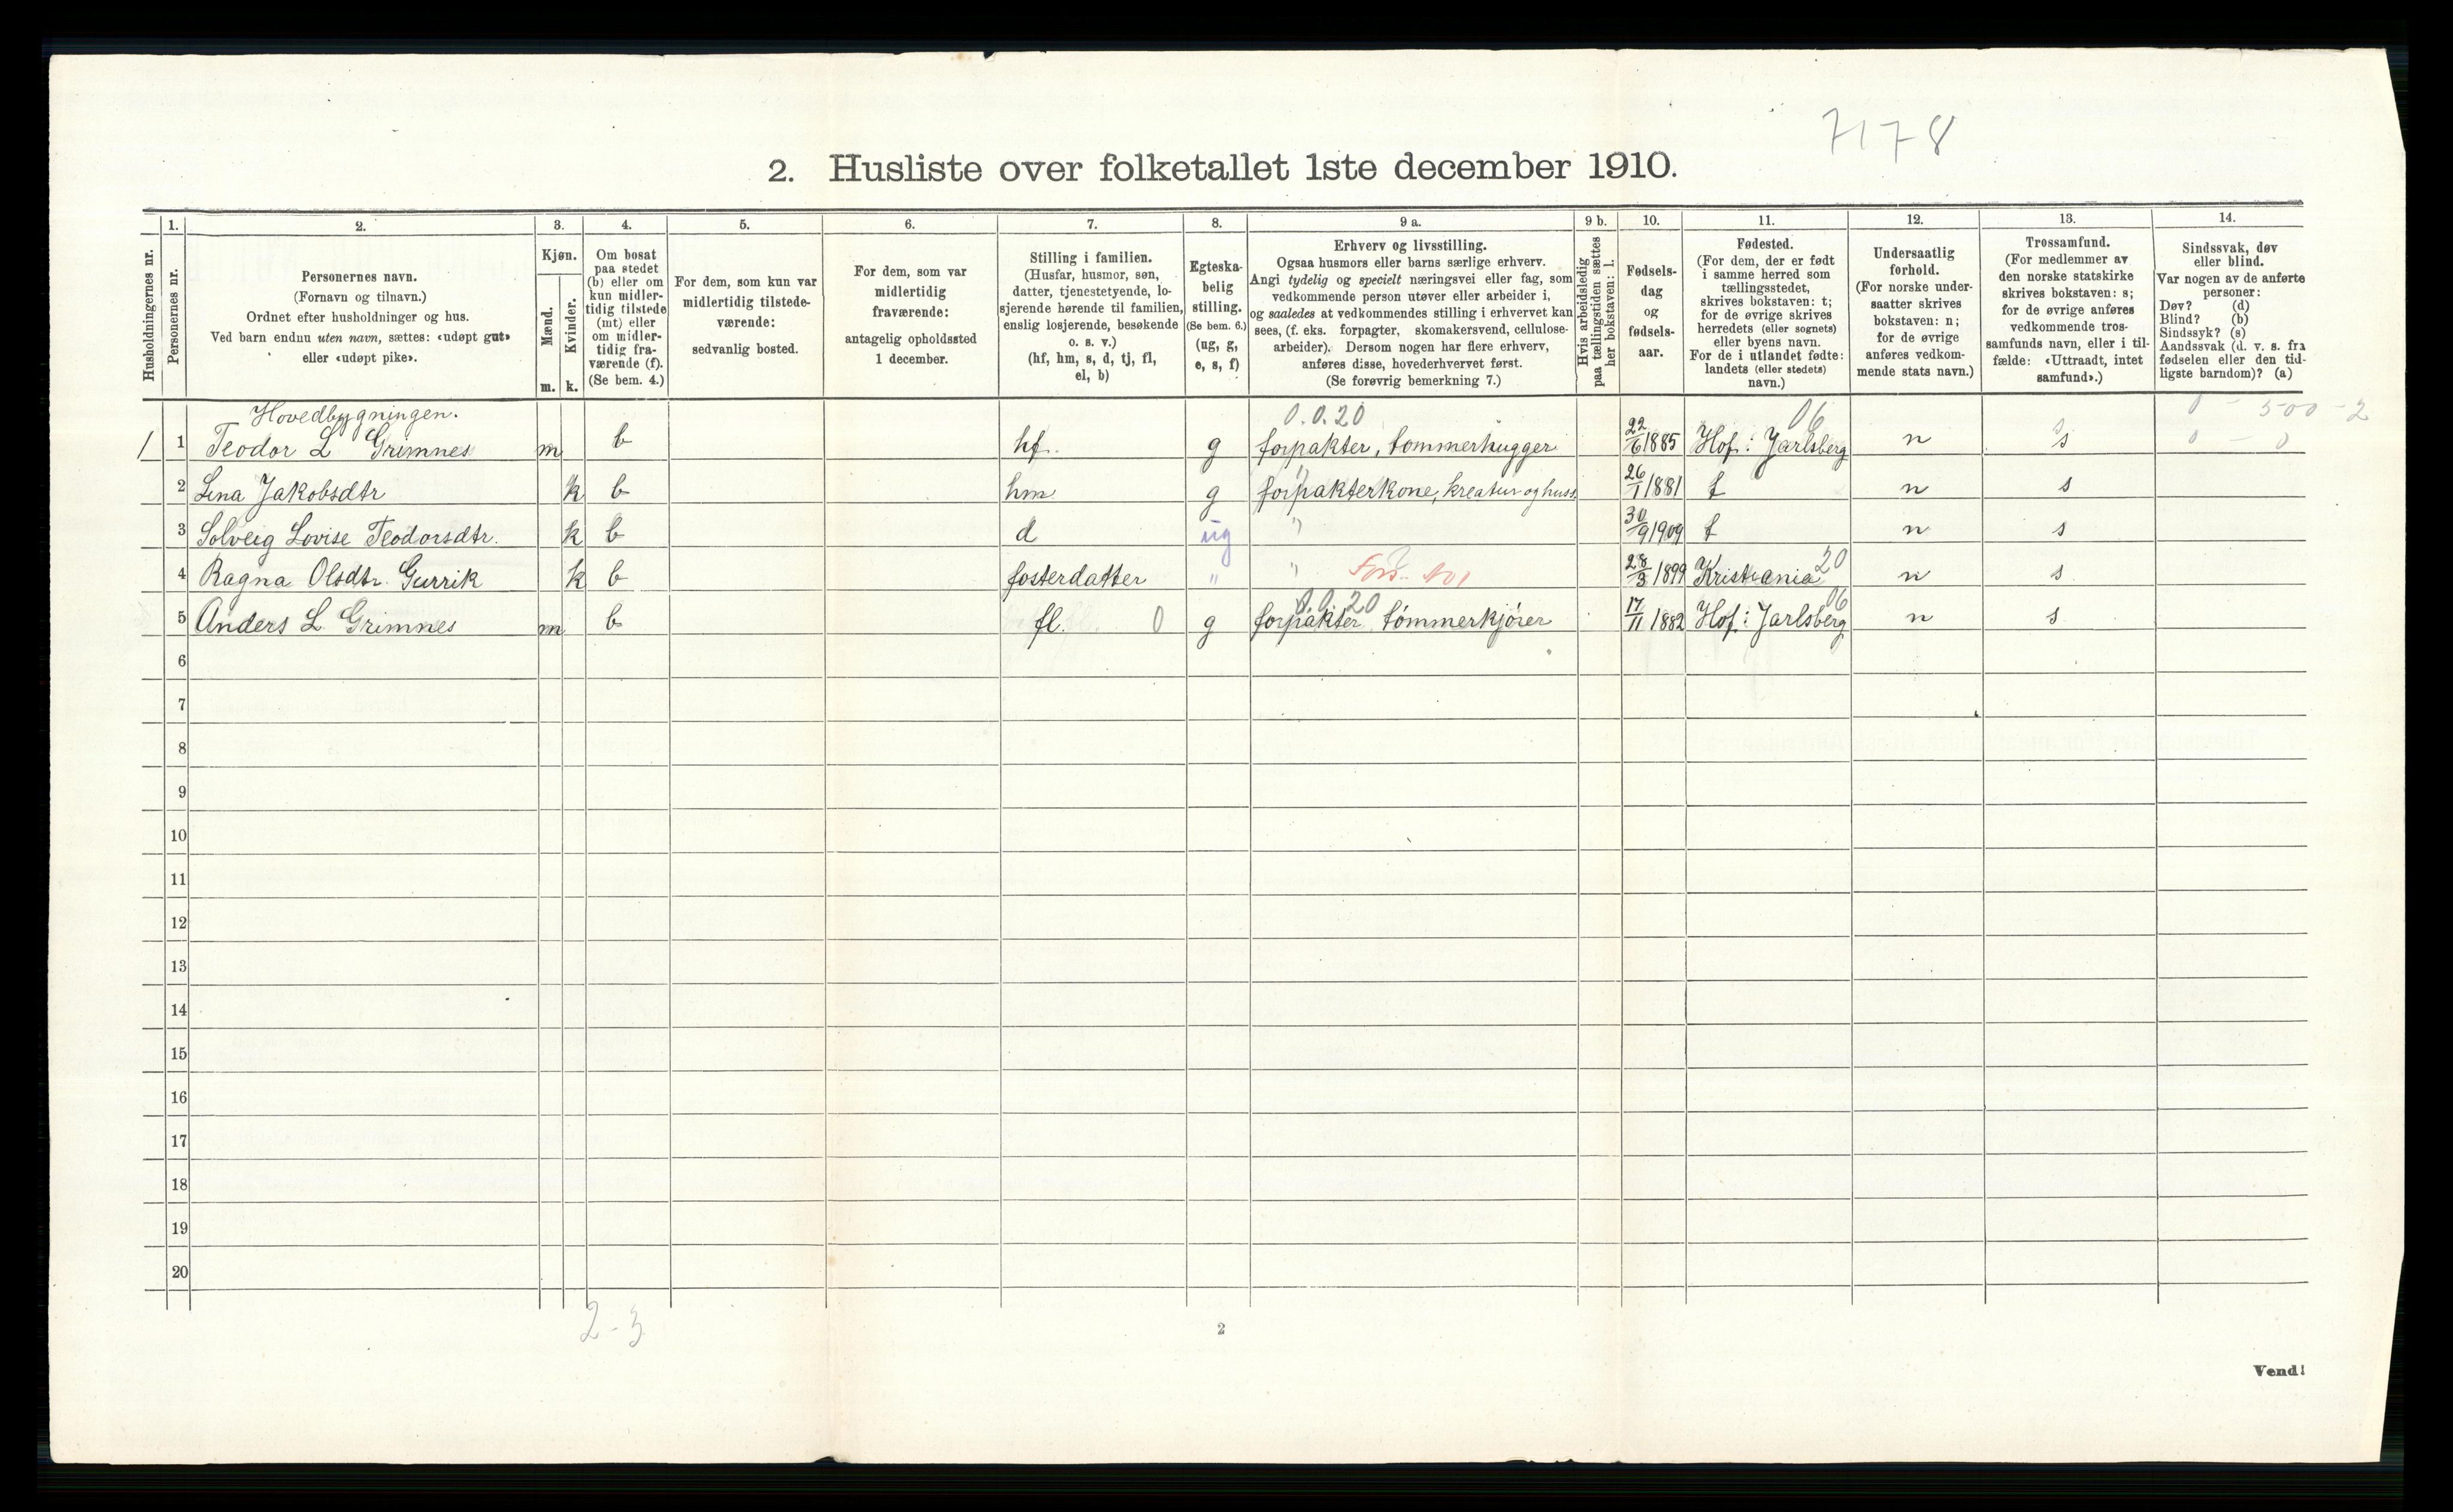 7178
2. Husliste over folketallet 1ste december 1910.
1. 2. 3. 4. 5. 6. 7. 8. 9 a. 9 b. 10. 11. 12. 13. 14.
Husholdningernes nr.
Personernes nr.
Personernes navn.
(Fornavn og tilnavn.)
Ordnet efter husholdninger og hus.
Ved barn endnu uten navn, sættes: «udøpt gut»
eller «udøpt pike».
Kjøn.
Mænd.
Kvinder.
m. k.
Om bosat
paa stedet
(b) eller om
kun midler-
tidig tilstede
(mt) eller
om midler-
tidig fra-
værende (f).
(Se bem. 4.)
For dem, som kun var
midlertidig tilstede-
værende:
sedvanlig bosted.
For dem, som var
midlertidig
fraværende:
antagelig opholdssted
1 december.
Stilling i familien.
(Husfar, husmor, søn,
datter, tjenestetyende, lo-
sjerende hørende til familien,
enslig losjerende, besøkende
o. s. v.)
(hf, hm, s, d, tj, fl,
el, b)
Egteska-
belig
stilling.
(Se bem. 6.)
(ug, g,
e, s, f)
Erhverv og livsstilling.
Ogsaa husmors eller barns særlige erhverv.
Angi tydelig og specielt næringsvei eller fag, som
vedkommende person utøver eller arbeider i,
og saaledes at vedkommendes stilling i erhvervet kan
sees, (f. eks. forpagter, skomakersvend, cellulose-
arbeider). Dersom nogen har flere erhverv,
anføres disse, hovederhvervet først.
(Se forøvrig bemerkning 7.)
Hvis arbeidsledig
paa tællingstiden sættes
her bokstaven: l.
Fødsels-
dag
og
fødsels-
aar.
Fødested.
(For dem, der er født
i samme herred som
tællingsstedet,
skrives bokstaven: t;
for de øvrige skrives
herredets (eller sognets)
eller byens navn.
For de i utlandet fødte:
landets (eller stedets)
navn.)
Undersaatlig
forhold.
(For norske under-
saatter skrives
bokstaven: n;
for de øvrige
anføres vedkom-
mende stats navn.)
Trossamfund.
(For medlemmer av
den norske statskirke
skrives bokstaven: s;
for de øvrige anføres
vedkommende tros-
samfunds navn, eller i til-
fælde: «Uttraadt, intet
samfund».)
Sindssvak, døv
eller blind.
Var nogen av de anførte
personer:
Døv? (d)
Blind? (b)
Sindssyk? (s)
Aandssvak (d. v. s. fra
fødselen eller den tid-
ligste barndom)? (a)
Hovedbygningen. 0.0.20 06 0 - 500 - 2
1 1 Teodor L Grimnes m b hf. g forpakter, tømmerhugger 22/6 1885 Hof i Jarlsberg n s 0 - 0
2 Lina Jakobsdtr k b hm g forpakterkone, kreatur og huss 26/1 1881 t n s
3 Solveig Lovise Teodorsdtr. k b d ug " 30/9 1909 t n s
20
4 Ragna Olsdtr. Gurrik k b fosterdatter " " 28/3 1899 Kristiania n s
0.0.20 06
5 Anders L. Grimnes m b fl. 0 g forpakter tømmerkjører 17/11 1882 Hof i Jarlsberg n s
6
7
8
9
10
11
12
13
14
15
16
17
18
19
20
2-3
2
Vend!